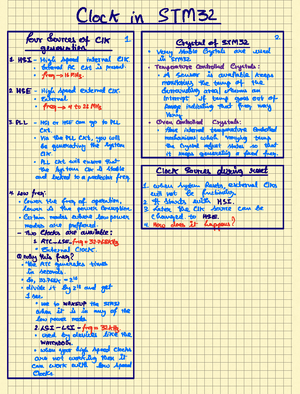 Clock in STM32
1.
Four Sources of Clk
generation
1. HSI - High Speed internal Clk.
• External RC Ckt is present
• freq → 16 MHz.
2. HSE - High Speed external Clk.
• External
• freq → 4 to 32 MHz
3. PLL - HSI or HSE can go to PLL
Ckt.
• Via the PLL Ckt, you will
be generating the System
Clk
• PLL Ckt will ensure that
the System Clk is stable
and locked to a particular freq
4. Low freq:
• Lower the freq of operation,
lower is the power consumption
• Certain modes where low power
modes are preffered.
- Two Clocks are available:
1. RTC - LSE - freq = 32.768 KHz
• External Clock.
Why this freq?
• The RTC generates timer
in seconds.
• So, 32.768K = 2^15
• divide it by 2^15 and get
1 sec.
• use to WAKEUP the STM32
when it is in any of the
low power mode.
2. LSI - LSI - freq = 32 KHz.
• used by devices like the
WATCHDOG.
• when your high speed clocks
are not working then it
can work with low speed
Clocks.
2.
Crystal of STM32
• Very Stable Crystals are used
in STM32.
• Temperature Controlled Crystals:
• A Sensor is available keeps
monitoring the temp of the
surrounding area/ throws an
interrupt if temp goes out of
range indicating that freq may
vary
• Oven Controlled Crystals:
• Have internal temperature controlled
mechanism which varying temp
the Crystal adjust states so that
it keeps generating a fixed freq.
Clock Sources during reset
1. when System Resets, external Clks
will not be functioning
2. It starts with HSI.
3. Later, the Clk Source can be
changed to HSE.
4. How does it happens?